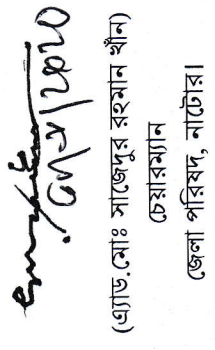 (এ্যাড.মোঃ সাজেদুর রহমান খাঁন)
চেয়ারম্যান
জেলা পরিষদ, নাটোর।